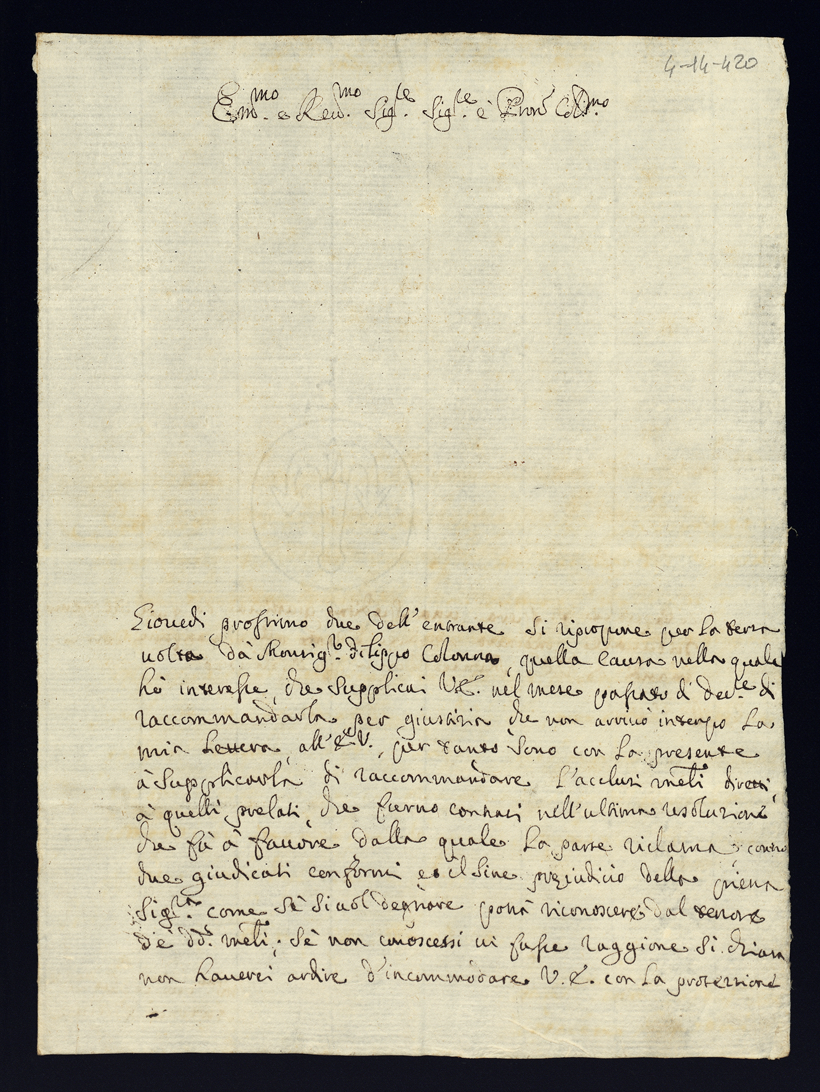 4-14-420
Em.mo e Reu.mo Sig.re Sig.re è Pron Col.mo
Giouedi prossimo due dell'entrante si ripropone per la terza
uolta dà Monsig.r Filippo Colonna, quella causa nella quale
hò interesse, che supplicai V.E. nel mese passato di Dec.re di
raccommandarla per giustizia che non arriuò intempo la
mia lettera, all'E.V., per tanto sono con la presente
à supplicarla di raccommandare l'acclusi meti diretti,
à quelli prelati, che furno contrari nell'ultima resoluzione
che fù à fauore dalla quale la parte riclama contro
due giudicati conformi es il sine pregiudicio della
Sig.ra come sè si uol degnare potrà riconoscere dal tenore
dè dd. meti; sè non conoscessi ui fusse raggione si chiara
non hauerei ardire d'incommodare V.E. con la protezzione